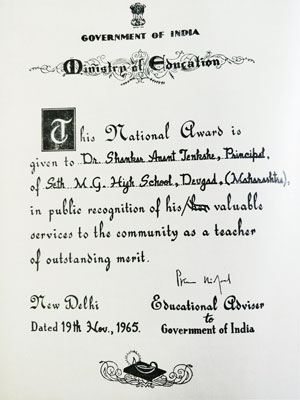 GOVERNMENT OF INDIA
Ministry of Education
This National Award is
given to Dr. Shankar Anant Tenkshe, Principal,
of Seth M. G. High School, Devgad, (Maharashtra),
in public recognition of his/her valuable
services to the community as a teacher
of outstanding merit.
New Delhi
Dated 19th Nov., 1965.
Educational Adviser
to
Government of India